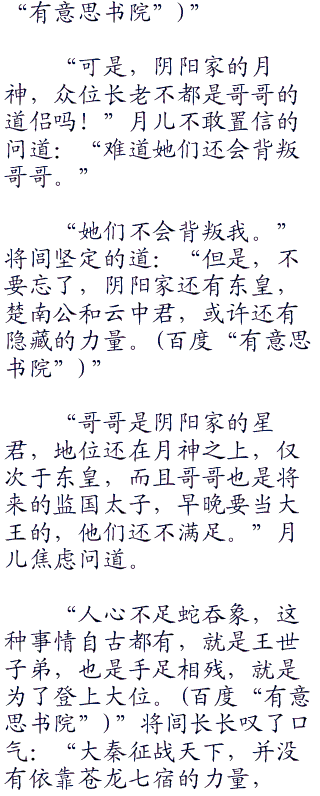 “有意思书院”)”
“可是，阴阳家的月
神，众位长老不都是哥哥的
道侣吗！”月儿不敢置信的
问道：“难道她们还会背叛
哥哥。”
“她们不会背叛我。”
将闾坚定的道：“但是，不
要忘了，阴阳家还有东皇，
楚南公和云中君，或许还有
隐藏的力量。(百度“有意思
书院”)”
“哥哥是阴阳家的星
君，地位还在月神之上，仅
次于东皇，而且哥哥也是将
来的监国太子，早晚要当大
王的，他们还不满足。”月
儿焦虑问道。
“人心不足蛇吞象，这
种事情自古都有，就是王世
子弟，也是手足相残，就是
为了登上大位。(百度“有意
思书院”)”将闾长长叹了口
气：“大秦征战天下，并没
有依靠苍龙七宿的力量，